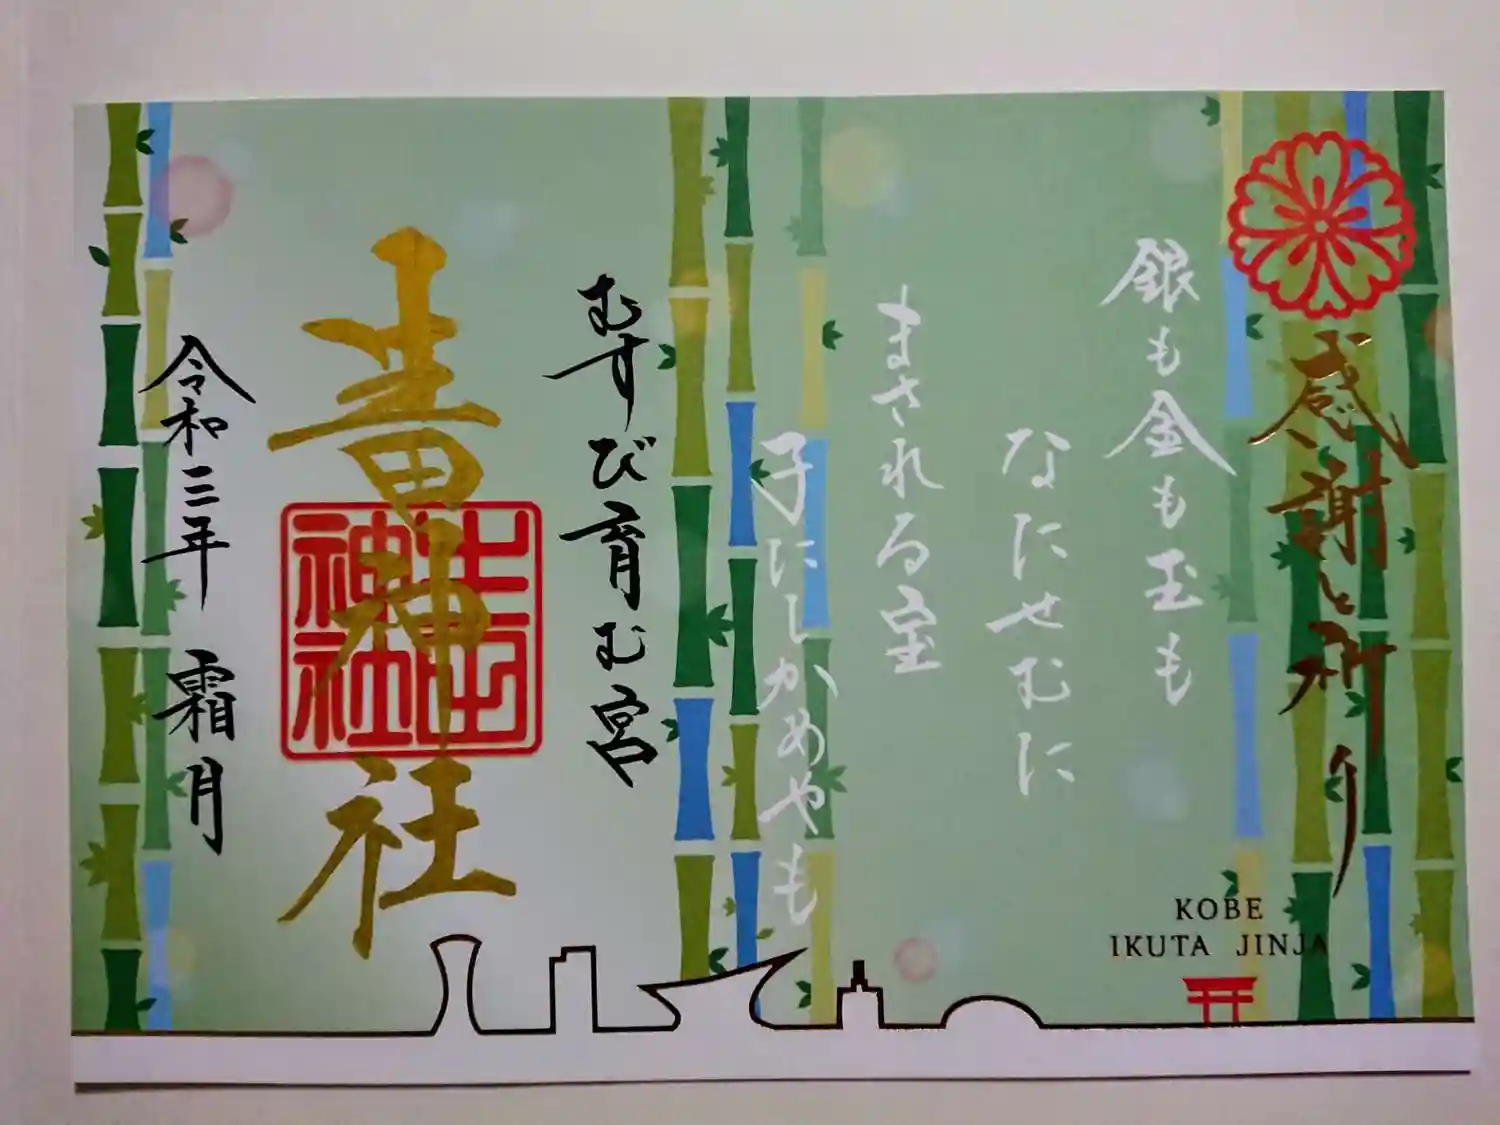 感謝と祈り
銀も金も玉も
なにせむに
まされる宝
子にしかめやも
KOBE
IKUTA JINJA
むすび育む宮
生田神社
生田神社
令和三年 霜月